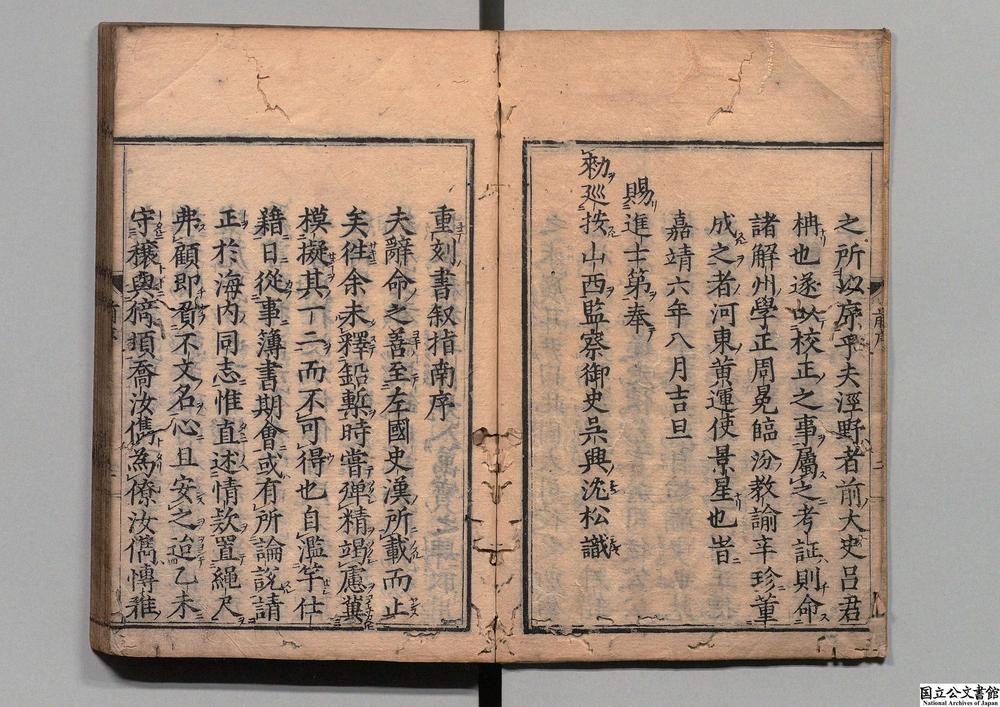 之所以序乎夫涇野者前大史呂君
柟也遂以校正之事屬之考証則命
諸解州學正周冕臨汾教諭辛珍董
成之者河東黃運使景星也旹
嘉靖六年八月吉旦
賜進士第奉
勑廵按山西監察御史吳興沈松識
重刻書叙指南序
夫辭命之善至左國史漢所載而止
矣徃余未釋鉛槧時嘗殫精竭慮冀
模擬其一二而不可得也自濫竽仕
籍日從事簿書期會或有所論說請
正於海内同志惟直述情欵置繩尺
弗顧即貽不文名心且安之迨乙未
守穰與適頃喬汝儁為僚汝儁愽雅
国立公文書館
National Archives of Japan